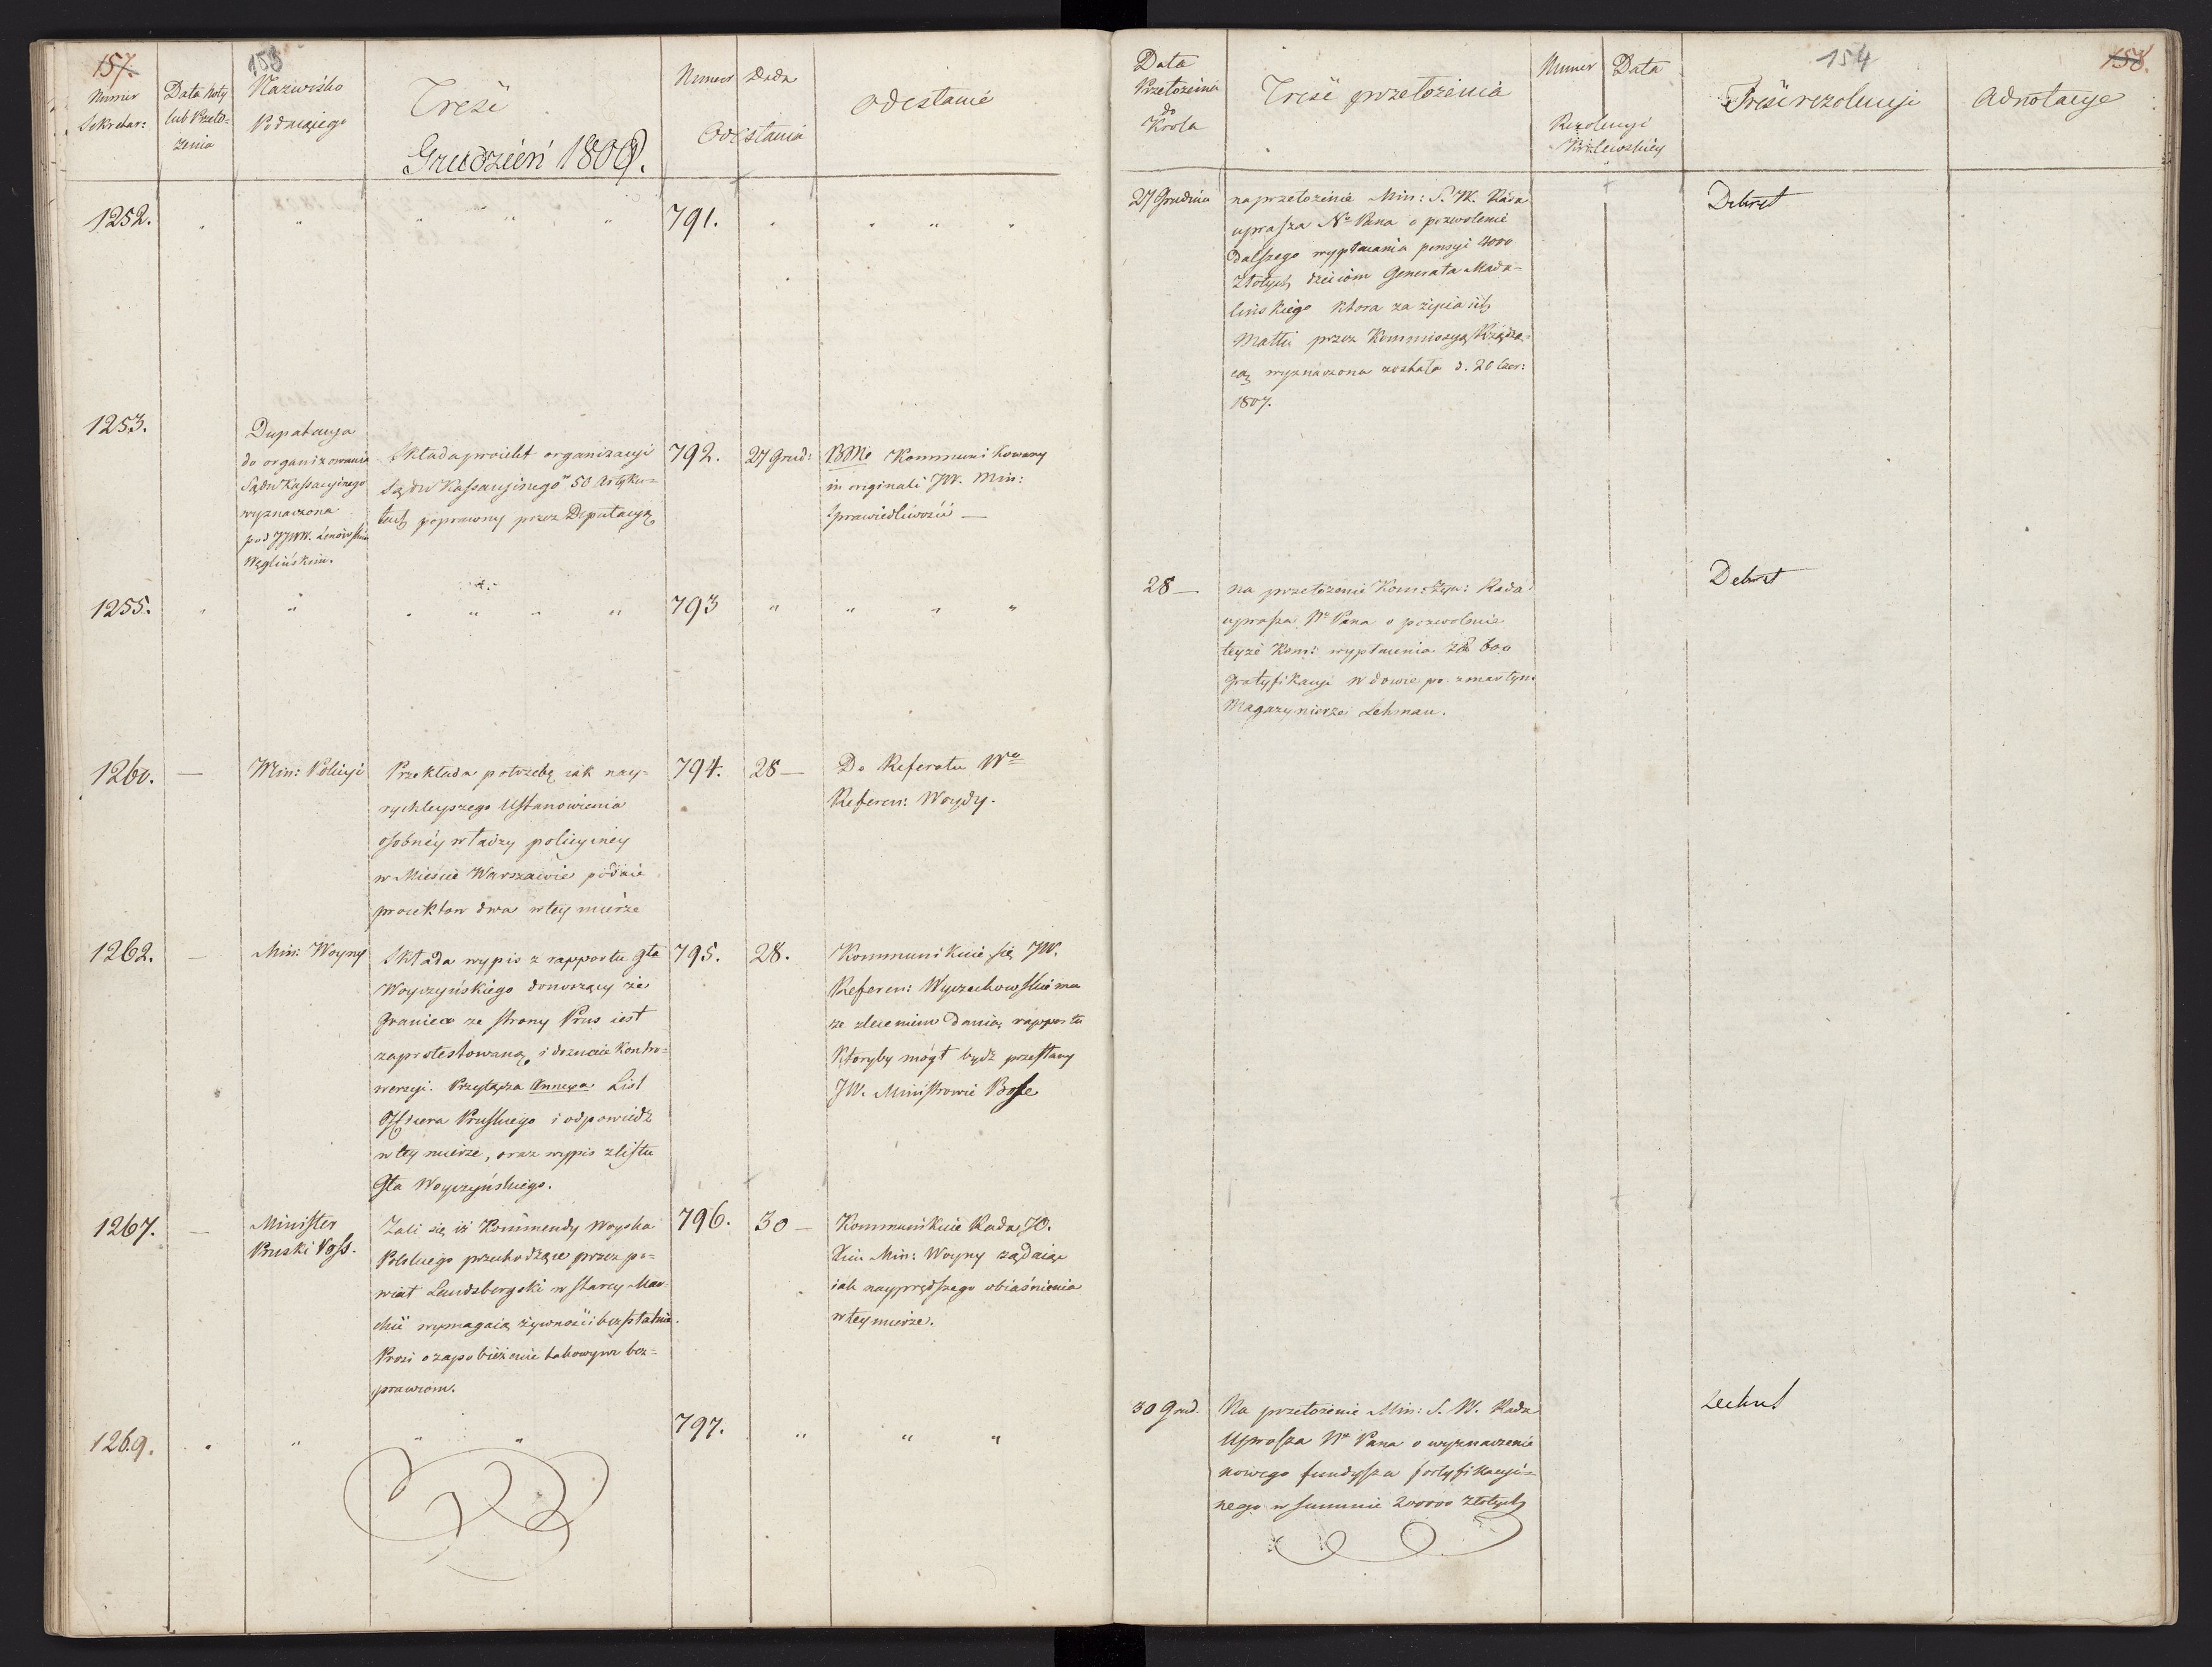 157.
153
Numer
Sekretar:
Data Noty
lub Przeło-
żenia
Nazwisko
Podaiącego
Treść
Grudzień 1809.
Numer
Data
Odesłania
Odesłanie
1252. " " " " " " 791. " " " "
1253.
Duputacya
do organizowania
Sądu Kassacyinego
wyznaczona
pod JJWW.
Węglińskim.
Składa proiekt organizacyi
Sądu Kassacyinego w 50 Artyku-
łach poprawny przez Deputacyą
792.
27 Grud:
Kommunikowany
in originali JW. Min:
Sprawiedliwości —
1255. " " " " " " 793 " " " "
1260.
—
Min: Policyi
Przekłada potrzebę iak nay-
rychleyszego Ustanowienia
osobnéy władzy policyinéy
w Mieście Warszawie podaie
proiektow dwa w tey mierze
794.
28 —
Do Referatu Wo
Referen: Woydy.
1262.
—
Min: Woyny
Składa wypis z rapportu Gła
Woyczyńskiego donoszący że
Granica ze strony Prus iest
zaprotestowaną i doznaie Kontro-
wersyi. Przyłącza Annexa List
Officera Pruskiego i odpowiedź
w tey mierze, oraz wypis z listu
Gła Woyczyńskiego.
795.
28.
Kommunikuie się JW.
Referen: Wyczechowskiemu
ze zleceniem dania rapportu
Któryby mógł bydź przesłany
JW. Ministrowi Bose
1267.
—
Minister
Pruski Voss.
Żali się iż Kommendy Woyska
Polskiego przechodzące przez po-
wiat Landsbergski w starey Mar-
chii wymagaią żywności bezpłatnie.
Prosi o zapobieżenie takowym bez-
prawiom.
796.
30 —
Kommunikuie Rada JO.
Xciu Min: Woyny żądaiąc
iak nayprędszego obiaśnienia
w tey mierze.
1269. " " " " 797. " " "
154
158.
Data
Przełożenia
do
Krola
Treść przełożenia
Numer
Data
Rezolucyi
Królewskiey
Treść rezolucyi
Adnotacye
27 Grudnia
na przełożenie Min: S. W. Rada
uprasza No Pana o pozwolenie
dalszego wypłacania pensyi 4000
Złotych dzieciom Generała Mada-
lińskiego ktora za życia ich
Matki przez Kommissyą Rządzą-
cą wyznaczona została d. 20 Czer:
1807.
Dekret
28 —
na przełożenie Kom: Żyw: Rada
uprasza No Pana o pozwolenie
teyże Kom: wypłacenia Zł 600
Gratyfikacyi wdowie po zmarłym
Magazynierze Lehman.
Dekret
30 Grud.
Na przełożenie Min: S. W. Rada
Uprasza No Pana o wyznaczenie
nowego funduszu fortyfikacyi-
nego w summie 200000 Złotych
Dekret